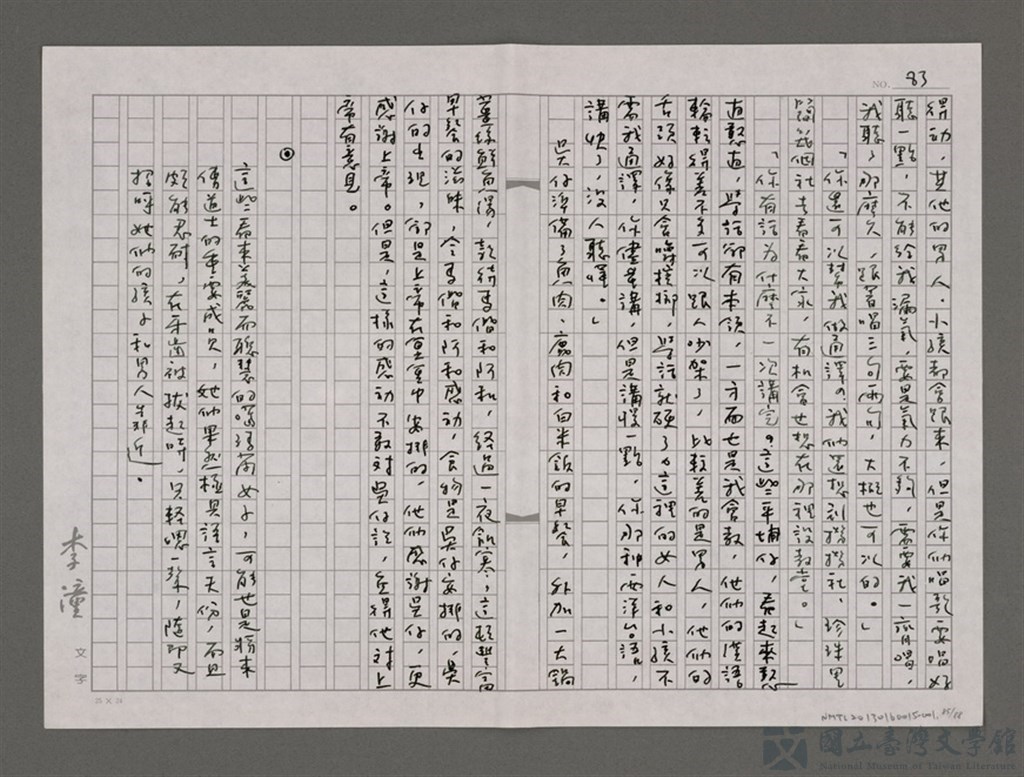 NO. 83
得動，其他的男人、小孩都會跟來，但是你們唱歌要唱好
聽一點，不能給我漏氣，要是氣力不夠，需要我一齊唱，
我聽了那麼久，跟著唱三句兩句，大概也可以的。」
「你還可以幫我做通譯。我們還想到撈撈社、珍珠里
簡幾個社去看看大家，有機會也想在那裡設教堂。」
「你有話為什麼不一次講完。這些平埔仔，看起來憨
直憨直，學話卻有本領，一方面也是我會教，他們的漢語
輪轉得差不多可以跟人吵架了，比較差的是男人，他們的
舌頭好像只會嚼檳榔，學話就硬了。這裡的女人和小孩不
需我通譯，你儘量講，但是講慢一點，你那種西洋台語，
講快了，沒人聽懂。」
吳仔準備了魚肉、鹿肉和白米飯的早餐，外加一大鍋
薑絲鮮魚湯，款待馬偕和阿和，經過一夜飢寒，這頓豐富
早餐的滋味，令馬偕和阿和感動，食物是吳仔安排的，吳
仔的出現，卻是上帝在冥冥中安排的，他們感謝吳仔，更
感謝上帝。但是，這樣的感動不敢對吳仔說，免得他對上
帝有意見。
◎
這些看來善良而聰慧的噶瑪蘭女子，可能也是將來
傳道士的重要成員，她們果然極具語言天份，而且
頗能忍耐，在牙齒被拔起時，只輕嗯一聲，隨即又
招呼她們的孩子和男人靠近。
李潼 文字
25 X 24
NMTL20130160015-001. 85/88
國立臺灣文學館
National Museum of Taiwan Literature